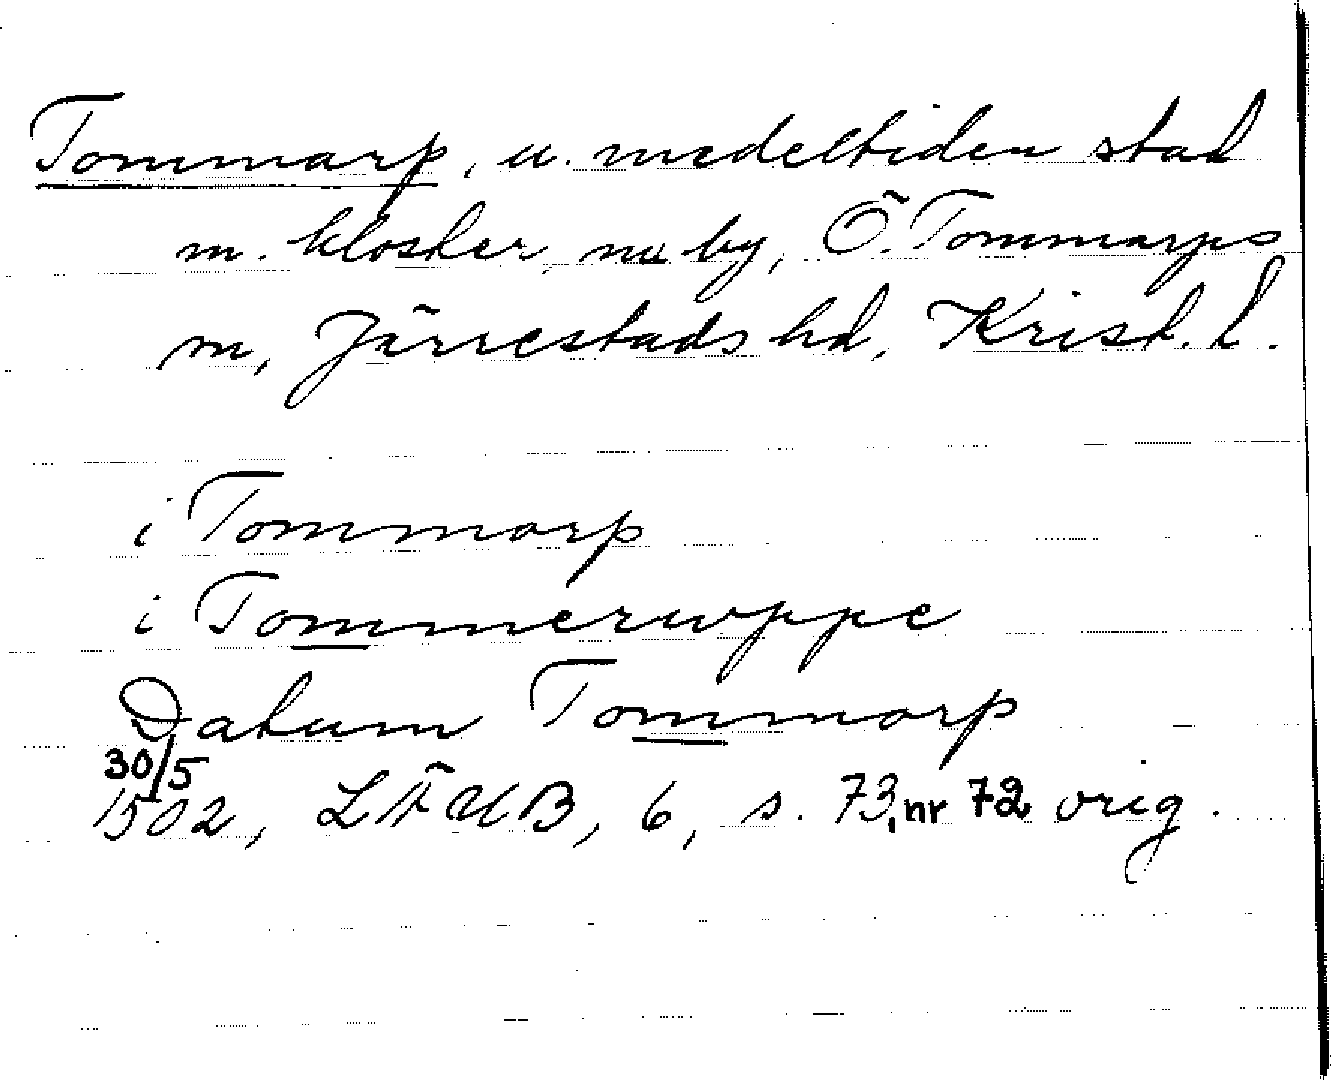 Tommarp, u. medeltiden stad
m. kloster, nu by, Ö. Tommarps
m, Järrestads hd, Krist. l.
i Tommorp
i Tommerwppe
Datum Tommorp
30/5
1502, LÄUB, 6, s. 73, nr 72 orig.